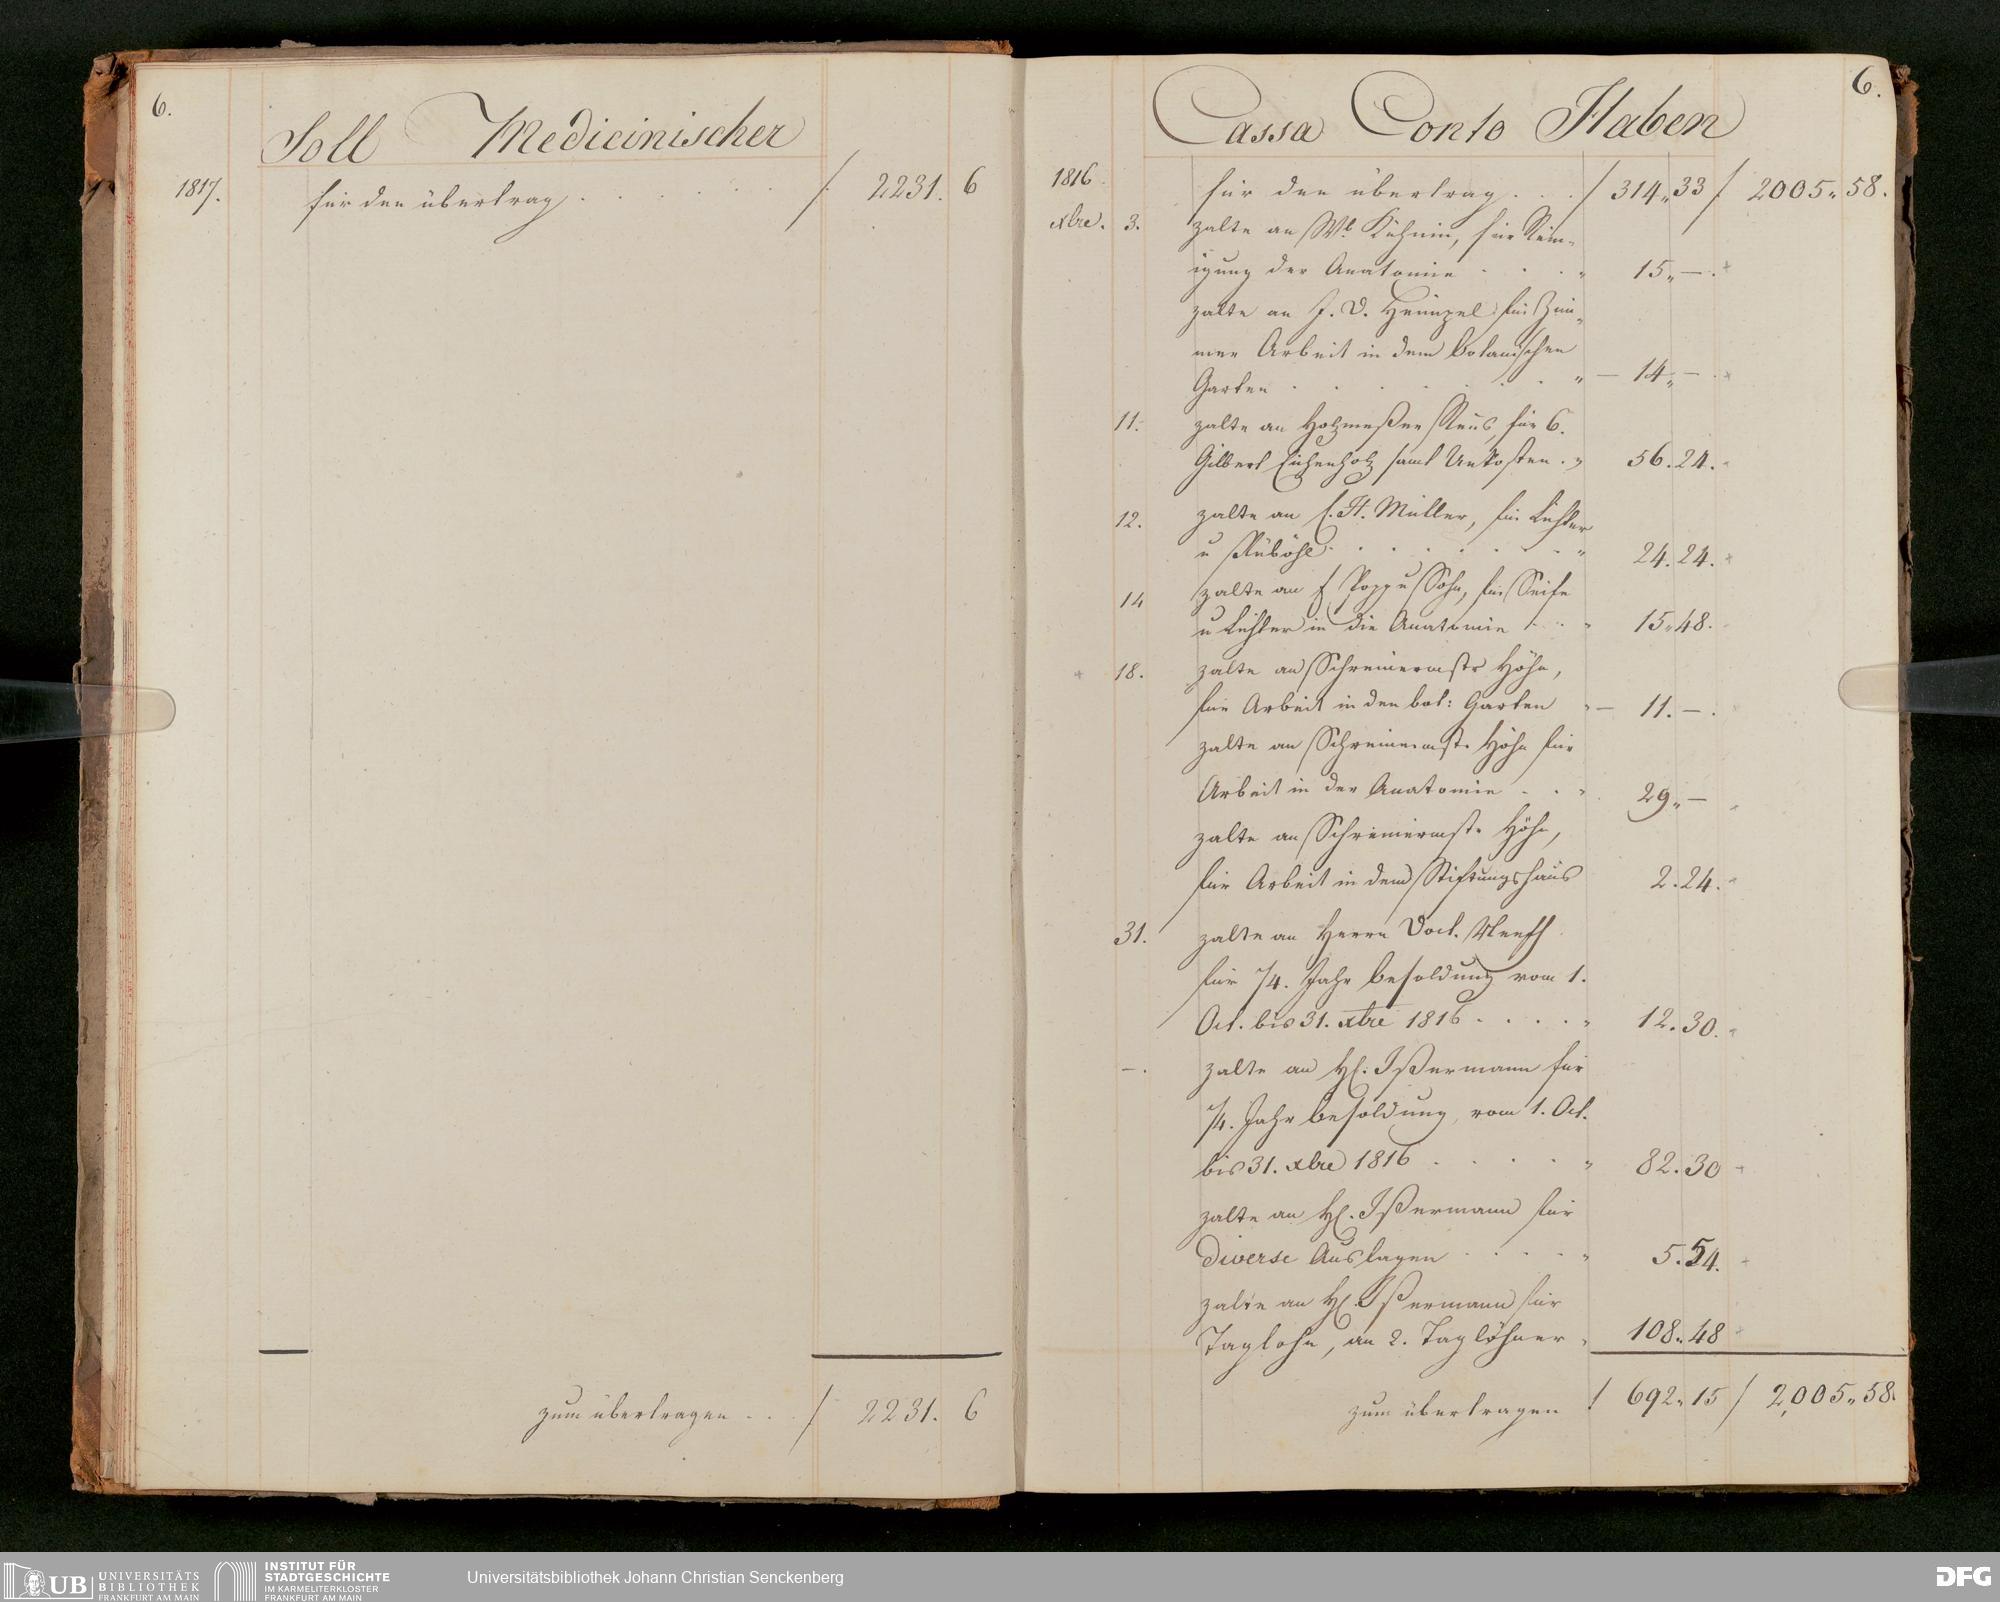 6.
Soll Medicinischer
1817.
für den übertrag . . . . . . / 2231. 6
zum übertragen . . . / 2231. 6
6.
Cassa Conto Haben
1816
für den übertrag . . . / 314„33 / 2005„58.
xbre. 3. zalte an Wb. Kühnin, für Rein-
igung der Anatomie . . . „ 15„—.
zalte an J. D. Heimpel für Zim-
mer Arbeit in dem botanischen
Garten . . . . . . . „ — 14„—.
11. zalte an Holzmeßer Reus, für 6.
Gilbert Eichenholz samt Unkosten . „ 56.24.
12. zalte an C. H. Müller, für Lichter
u Rüböhl . . . . . . „ 24.24.
14 zalte an Popp u Sohn, für Seife
u Lichter in die Anatomie . . „ 15„48.
18. zalte an Schreinermstr Höhn,
für Arbeit in den bot: Garten „ — 11.—.
zalte an Schreinermstr Höhn für
Arbeit in der Anatomie . . „ 29„—
zalte an Schreinermstr Höhn,
für Arbeit in dem Stiftungshaus 2.24.
31. zalte an Herrn Doct. Neeff
für 1/4. Jahr Besoldung vom 1.
Oct. bis 31. xbre 1816 . . . . „ 12.30.
—. zalte an H. Ißermann für
1/4. Jahr Besoldung, vom 1. Oct.
bis 31. xbre 1816 . . . . „ 82.30
zalte an H. Ißermann für
diverse Auslagen . . . . „ 5.54.
zalte an H. Ißermann für
Taglohn, an 2. Taglöhner „ 108„48
zum übertragen / 692„15 / 2,005„58.
UB UNIVERSITÄTS
BIBLIOTHEK
FRANKFURT AM MAIN
INSTITUT FÜR
STADTGESCHICHTE
IM KARMELITERKLOSTER
FRANKFURT AM MAIN
Universitätsbibliothek Johann Christian Senckenberg
DFG